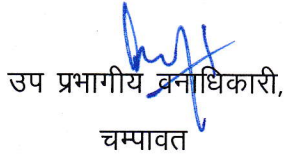 उप प्रभागीय वनाधिकारी,
चम्पावत